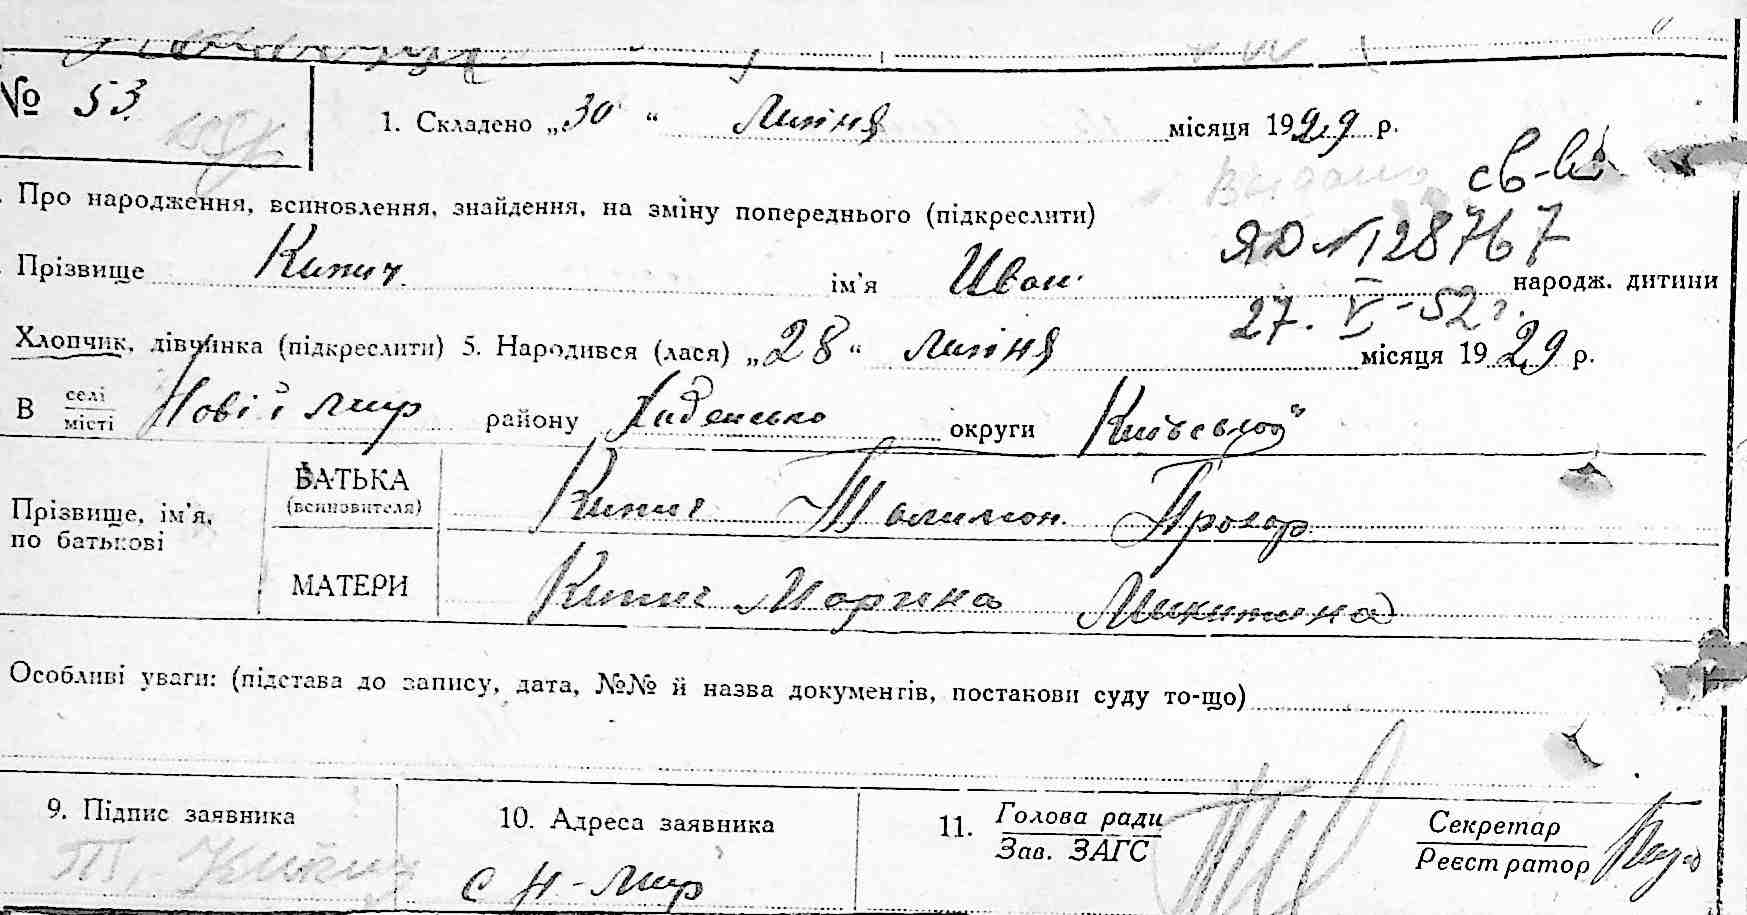 № 53.
1. Складено „30“ Липня місяця 1929 р.
Про народження, всиновлення, знайдення, на зміну попереднього (підкреслити)
Видано св-во
ЯО №128767
27. V-52 г.
Прізвище Кипич ім'я Иван народж. дитини
Хлопчик, дівчинка (підкреслити) 5. Народився (лася) „28“ липня місяця 1929 р.
В селі/місті Новій мир району округи Київської
Прізвище, ім'я, по батькові
БАТЬКА (всиновителя) Кипич Прохор
МАТЕРИ Кипич Марина Микитина
Особливі уваги: (підстава до запису, дата, №№ й назва документів, постанови суду то-що)
9. Підпис заявника
Т. Кипич
10. Адреса заявника
с Н-мир
11. Голова ради
Зав. ЗАГС
Секретар
Реєстратор